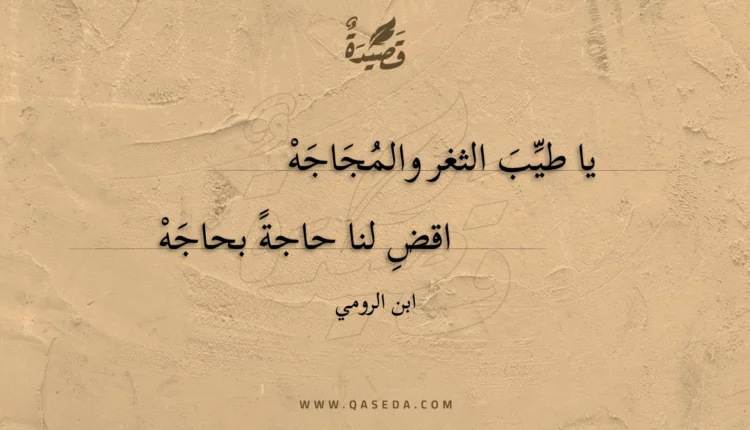 قَصِيْدَةٌ
يا طيِّبَ الثغر والمُجَاجَهْ
اقضِ لنا حاجةً بحاجَهْ
ابن الرومي
WWW.QASEDA.COM